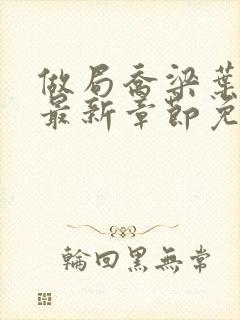 做局喬梁葉
最新章節免
輪回黑無常